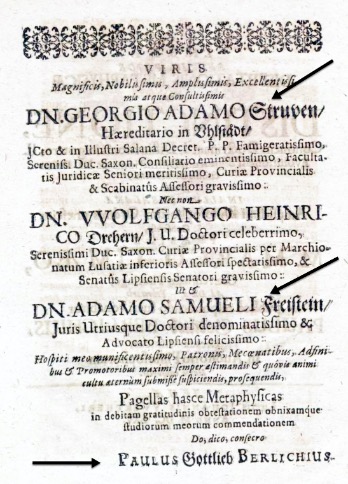 VIRIS
Magnificis, Nobilissimis, Amplissimis, Excellentissi-
mis atque Consultissimis
DN. GEORGIO ADAMO Struven/
Hæreditario in Vhlstådt/
JCto & in Illustri Salana Decret. P. P. Famigeratissimo,
Sereniss. Duc. Saxon. Consiliario eminentissimo, Faculta-
tis Juridicæ Seniori meritissimo, Curiæ Provincialis
& Scabinatus Assessori gravissimo:
Nec non
DN. VVOLFGANGO HEINRI-
CO Drehern/ J. U. Doctori celeberrimo,
Serenissimi Duc. Saxon. Curiæ Provincialis per Marchio-
natum Lusatiæ inferioris Assessori spectatissimo, &
Senatûs Lipsiensis Senatori gravissimo:
Ut &
DN. ADAMO SAMUELI Freistein/
Juris Utriusque Doctori denominatissimo &
Advocato Lipsiensi felicissimo:
Hospiti meo munificentissimo, Patronis, Mecœnatibus, Adfini-
bus & Promotoribus maximi semper æstimandis & quôvis animi
cultu æternum submissè suspiciendis, prosequendis,
Pagellas hasce Metaphysicas
in debitam gratitudinis obtestationem obnixamque
studiorum meorum commendationem
Do, dico, consecro
PAULUS Gottlieb BERLICHIUS.